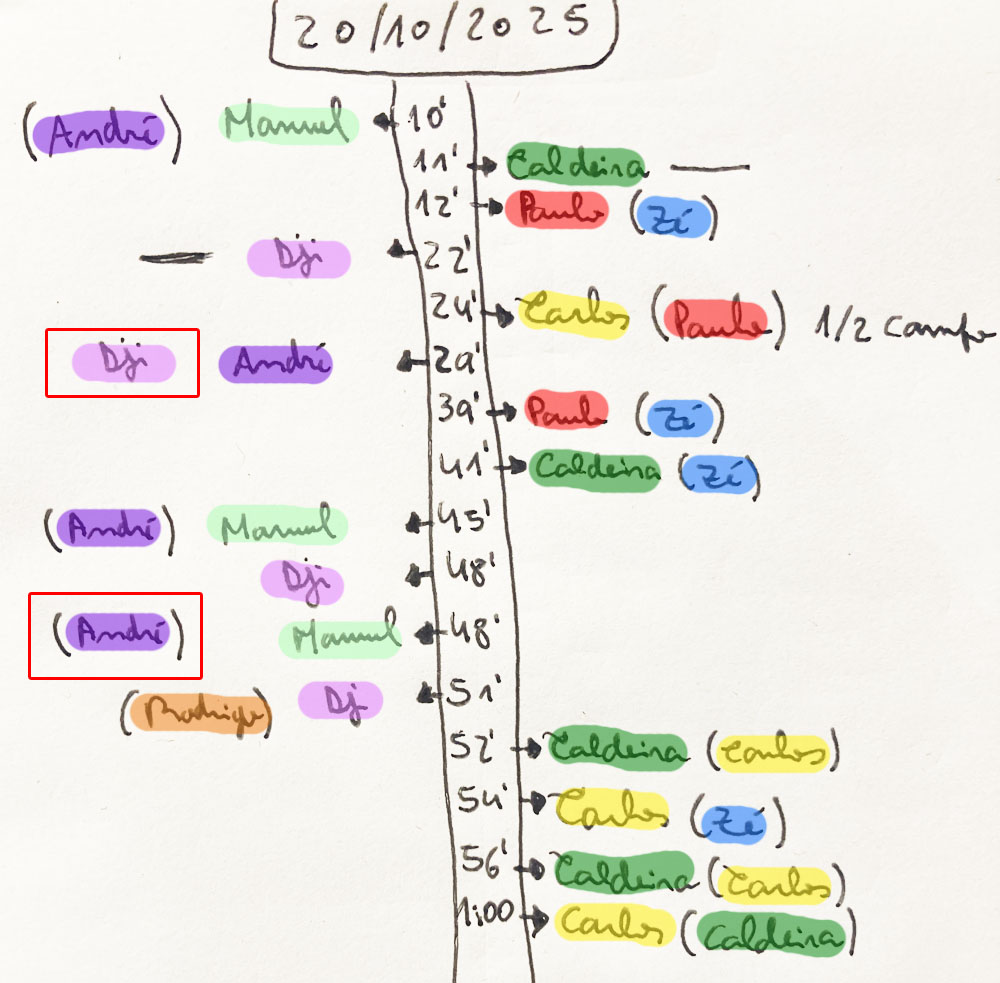 20/10/2025
(André) Manuel 10'
11' Caldeira —
12' Paulo (Zé)
— Dji 22'
24' Carlos (Paulo) 1/2 campo
Dji André 29'
39' Paulo (Zé)
41' Caldeira (Zé)
(André) Manuel 45'
Dji 48'
(André) Manuel 48'
(Rodrigo) Dji 51'
52' Caldeira (Carlos)
54' Carlos (Zé)
56' Caldeira (Carlos)
1:00 Carlos (Caldeira)